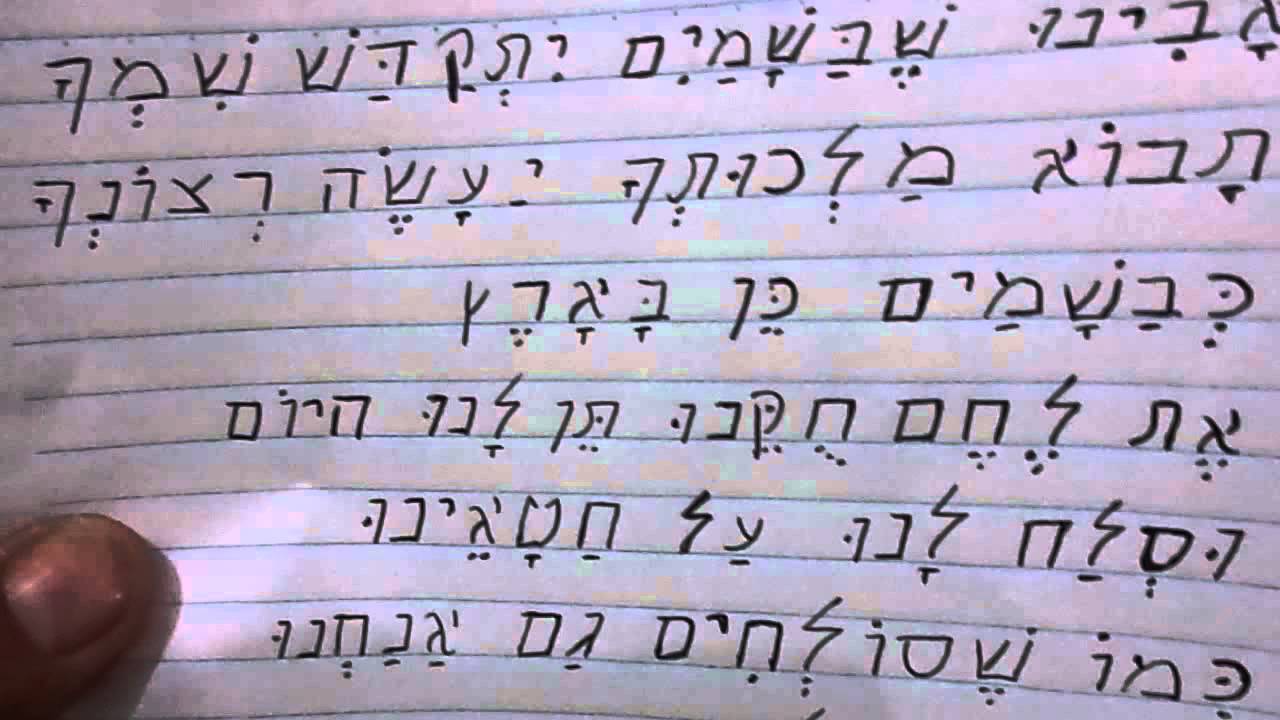 אָבִינוּ שֶׁבַּשָּׁמַיִם יִתְקַדַּשׁ שִׁמְךָ
תָבוֹא מַלְכוּתְךָ יֵעָשֶׂה רְצוֹנְךָ
כְּבַשָׁמַיִם כֵּן בָּאָרֶץ
אֶת לֶחֶם חֻקֵּנוּ תֵּן לָנוּ היוֹם
וּסְלַח לָנוּ עַל חַטָאֵינוּ
כְּמוֹ שֶׁסוֹלְחִים גַם אֲנַחְנוּ